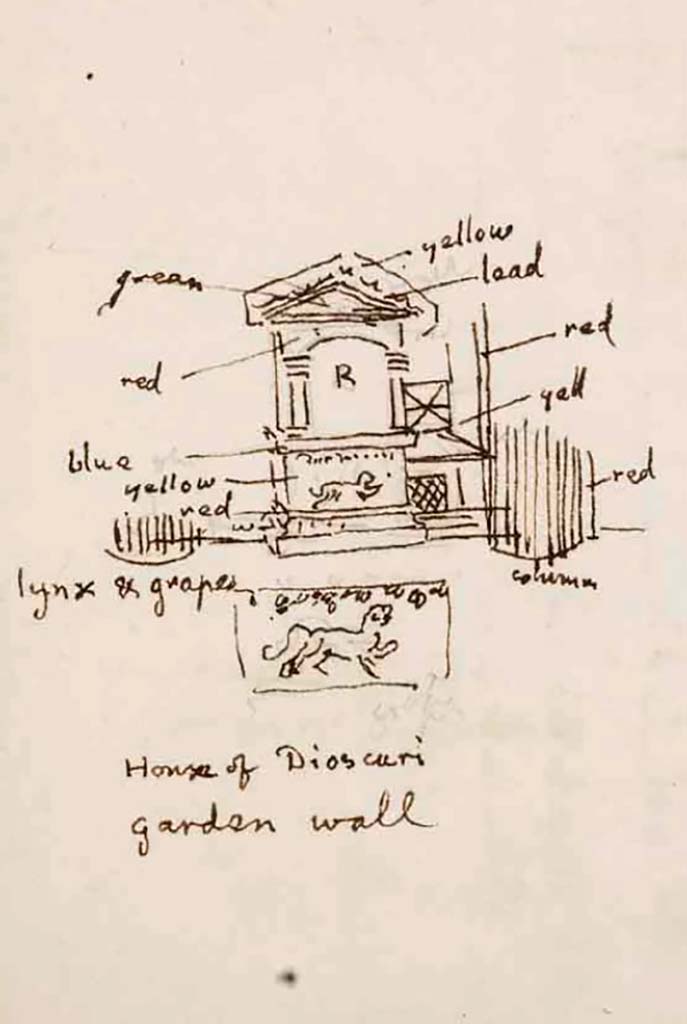 yellow
green
lead
red
red
R
yell
blue
yellow
red
red
w
lynx & grapes
columns
House of Dioscuri
garden wall